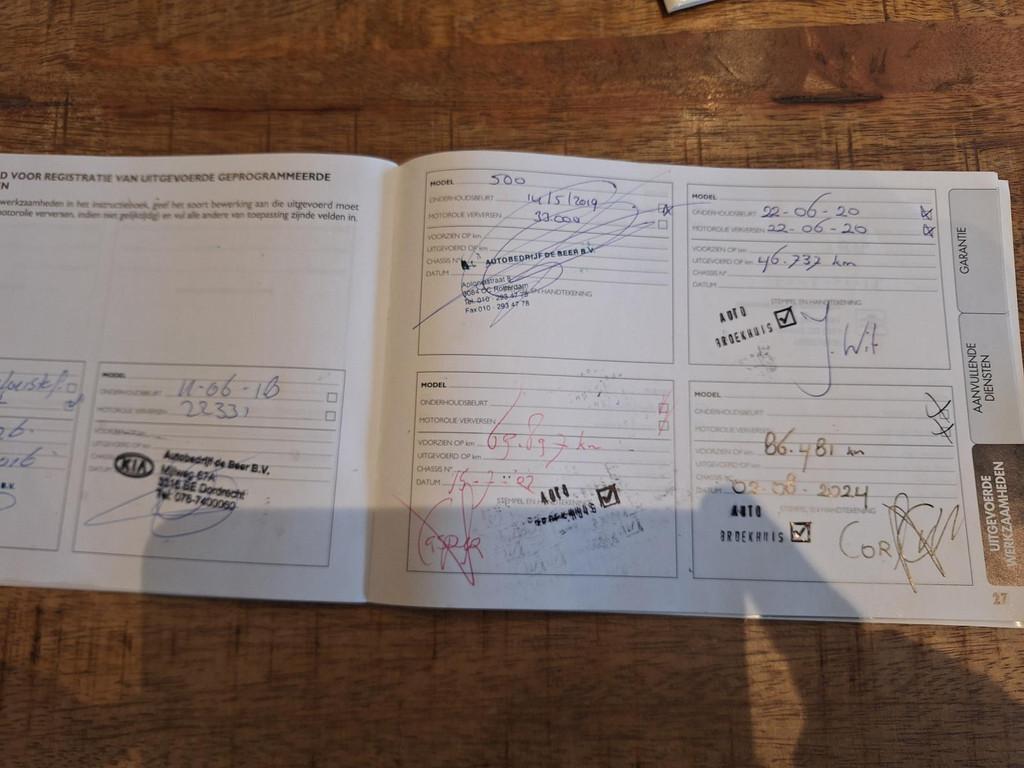 D VOOR REGISTRATIE VAN UITGEVOERDE GEPROGRAMMEERDE
EN
werkzaamheden in het instructieboek, geef het soort bewerking aan die uitgevoerd moet
motorolie verversen, indien niet gelijktijdig) en vul alle andere van toepassing zijnde velden in.
MODEL
ONDERHOUDSBEURT 11-06-18
MOTOROLIE VERVERSEN 22331
VOORZIEN OP
UITGEVOERD OP
CHASSIS
DATUM
KIA
Autobedrijf de Beer B.V.
Mijlweg 67A
3316 BE Dordrecht
Tel. 078-7400060
MODEL 500
ONDERHOUDSBEURT 14/5/2019
MOTOROLIE VERVERSEN 33.000
VOORZIEN OP km
UITGEVOERD OP km
CHASSIS N°
DATUM
AUTOBEDRIJF DE BEER B.V.
3084 CC Rotterdam
Tel. 010 - 293 47 78
Fax 010 - 293 47 78
EN HANDTEKENING
MODEL
ONDERHOUDSBEURT 22-06-20
MOTOROLIE VERVERSEN 22-06-20
VOORZIEN OP km
UITGEVOERD OP km 46.737 km
CHASSIS N°
DATUM
STEMPEL EN HANDTEKENING
AUTO
BROEKHUIS
J. Wit
MODEL
ONDERHOUDSBEURT
MOTOROLIE VERVERSEN
VOORZIEN OP km 69.897 km
UITGEVOERD OP km
CHASSIS N°
DATUM 15-7-22
STEMPEL EN HANDTEKENING
AUTO
BROEKHUIS
CASPER
MODEL
ONDERHOUDSBEURT
MOTOROLIE VERVERSEN
VOORZIEN OP km 86.481 km
UITGEVOERD OP km
CHASSIS N°
DATUM 02-08-2024
STEMPEL EN HANDTEKENING
AUTO
BROEKHUIS
COR
GARANTIE
AANVULLENDE
DIENSTEN
UITGEVOERDE
WERKZAAMHEDEN
27